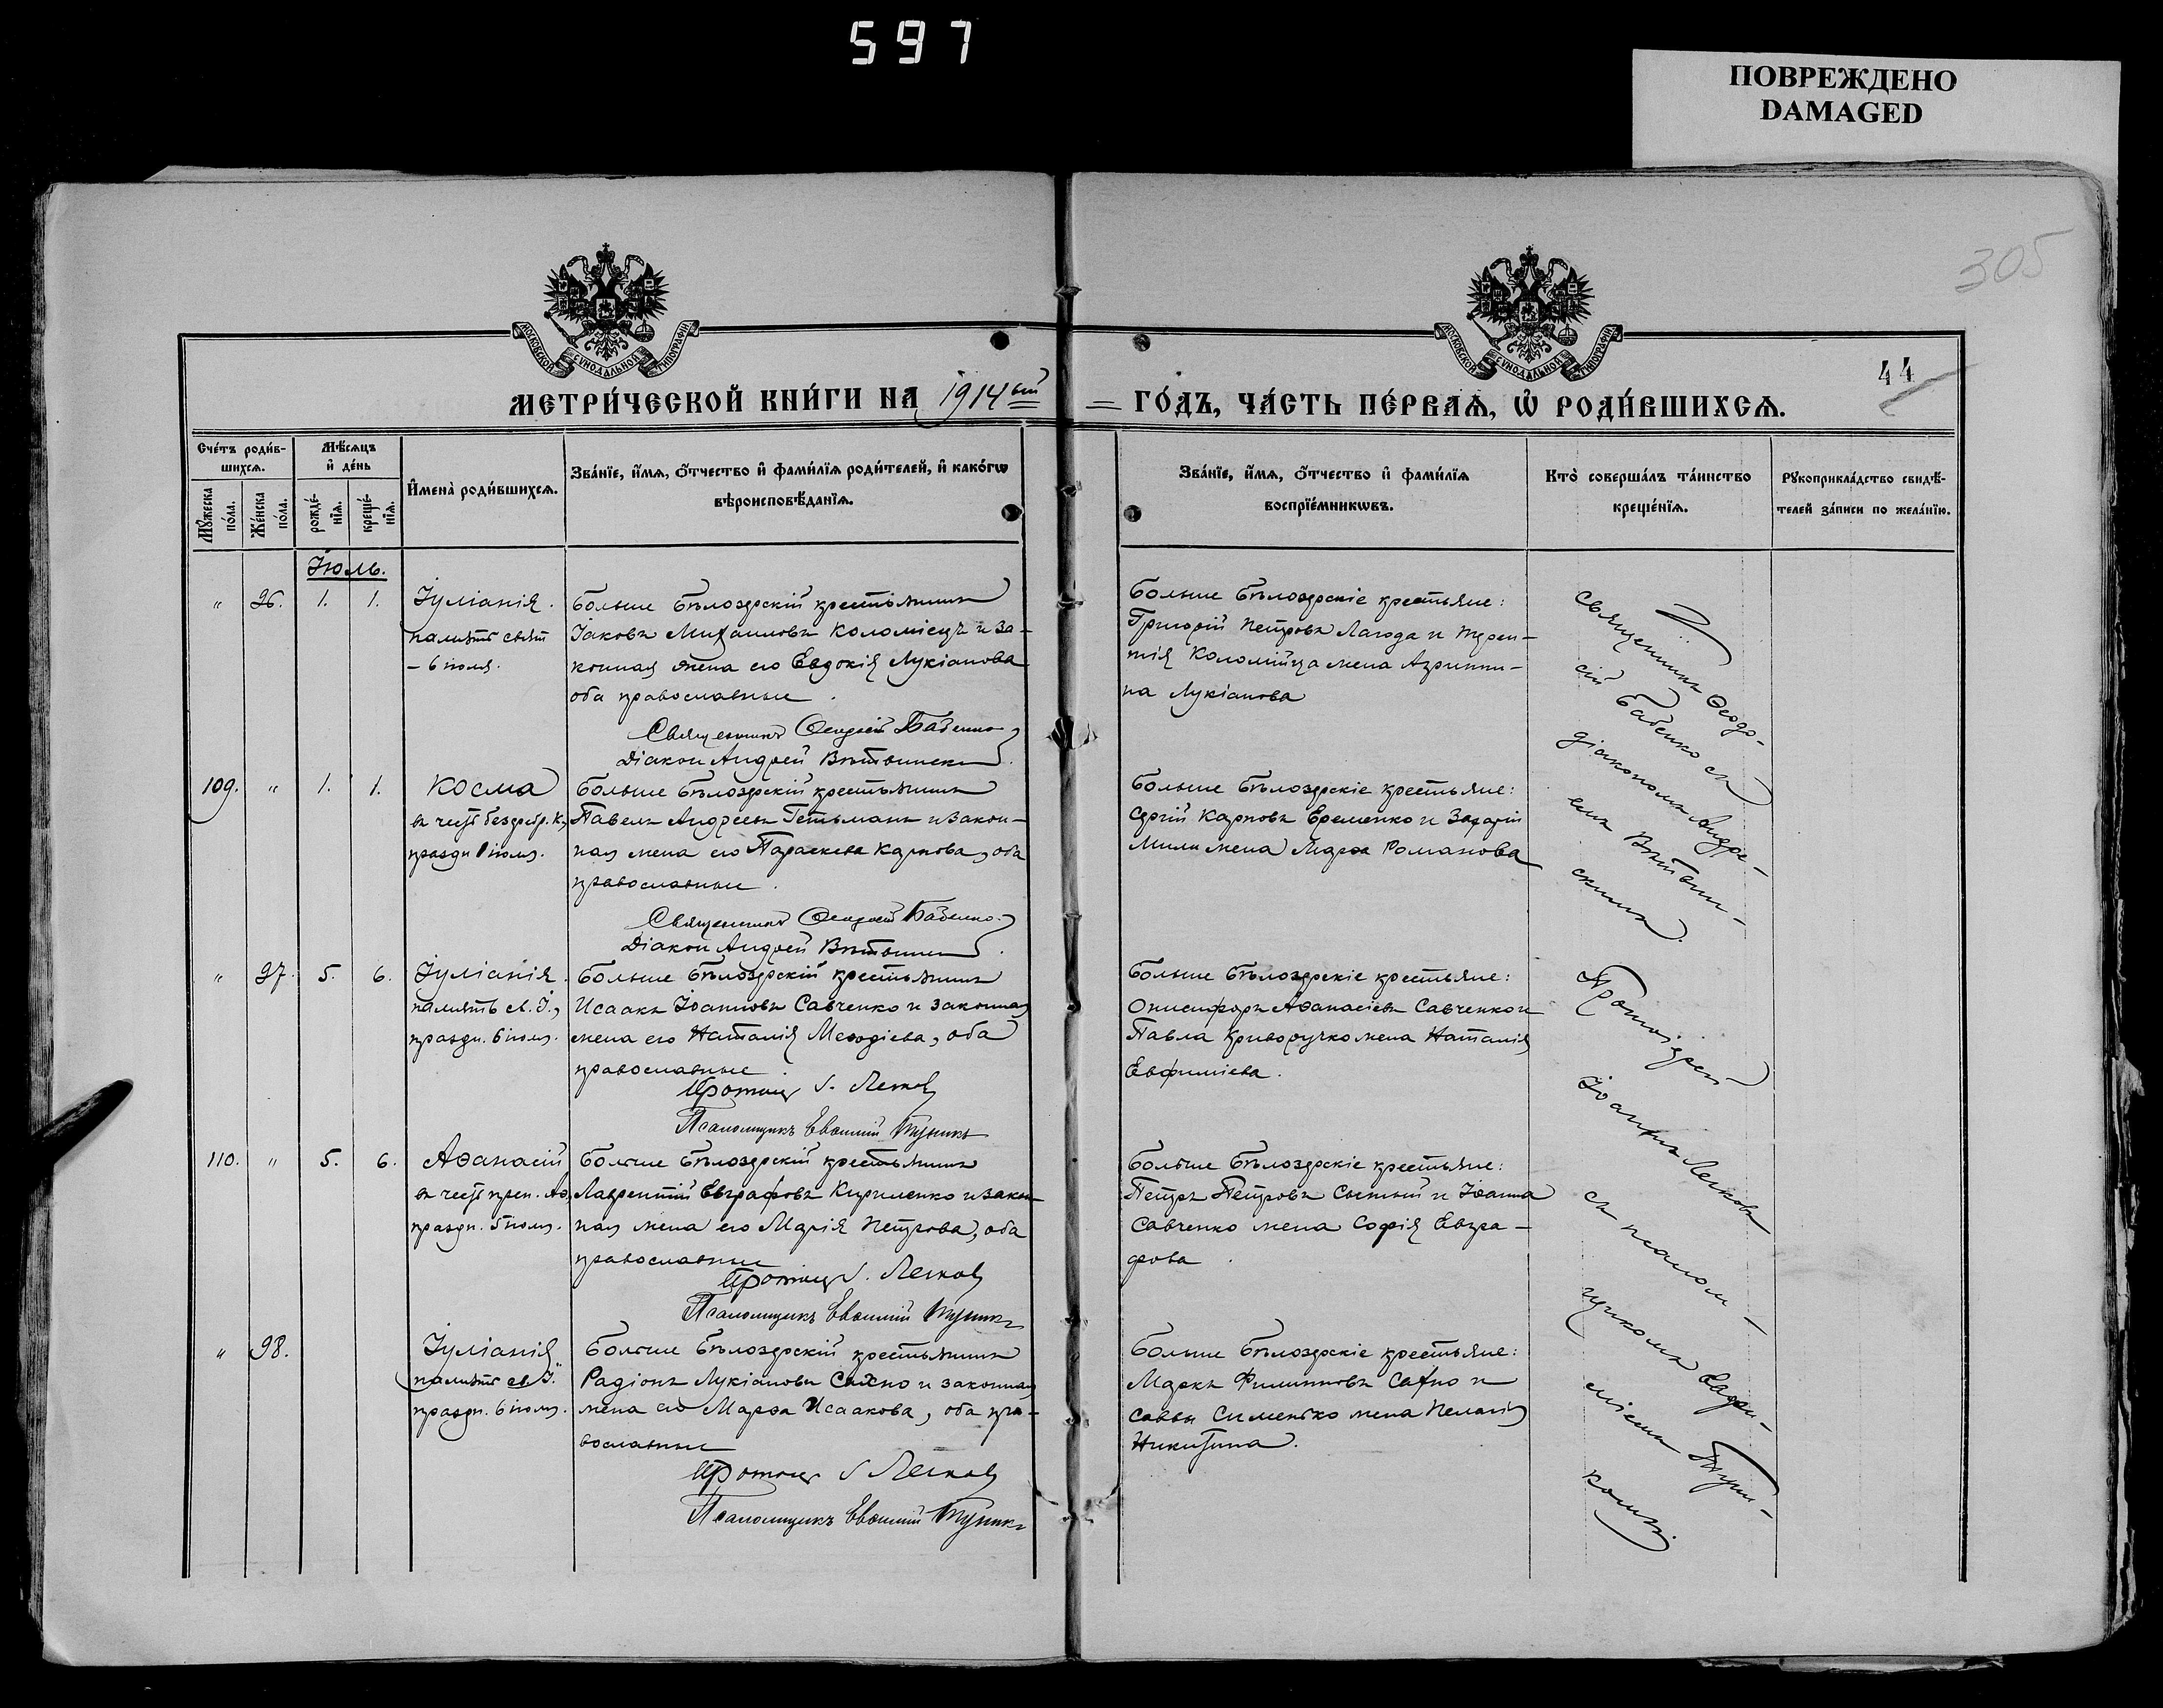 597
ПОВРЕЖДЕНО
DAMAGED
305
МОСКОВСКОЙ СѴНОДАЛЬНОЙ ТИПОГРАФІИ
МОСКОВСКОЙ СѴНОДАЛЬНОЙ ТИПОГРАФІИ
44
МЕТРИ́ЧЕСКОЙ КНИ́ГИ НА 1914ый
ГО́ДЪ, ЧА́СТЬ ПЕ́РВАѦ, Ѡ҆ РОДИ́ВШИХСѦ.
Сче́тъ роди́в-
шихсѧ.
Мꙋ́жеска
по́ла.
Же́нска
по́ла.
Мѣ́сѧцъ
и҆ де́нь
рожде́-
нїѧ.
креще́-
нїѧ.
И҆мена̀ роди́вшихсѧ.
Зва́нїе, и҆́мѧ, ѻ҆́тчество и҆ фами́лїѧ роди́телей, и҆ како́гѡ
вѣроисповѣ́данїѧ.
Зва́нїе, и҆́мѧ, ѻ҆́тчество и҆ фами́лїѧ
воспрїе́мникѡвъ.
Кто̀ соверша́лъ та́инство
креще́нїѧ.
Рꙋкоприкла́дство свидѣ́-
телей за́писи по жела́нїю.
Іюль.
" 96. 1. 1. Іуліанія.
память свят
– 6 іюля.
Больше Бѣлозерскій крестьянинъ
Іаковъ Михаиловъ Коломіецъ и за-
конная жена его Евдокія Лукіанова
оба православные.
Священникъ Ѳеодосій Бабенко
Діаконъ Андрей
Больше Бѣлозерскіе крестьяне:
Григорій Петровъ Лагода и Терен-
тія Коломійца жена Агриппи-
на Лукіанова
Священникъ Ѳеодо-
сій Бабенко съ
діакономъ Андре-
емъ
скимъ.
109. " 1. 1. Косма
въ честь безсребр. К.,
праздн 1 іюля.
Больше Бѣлозерскій крестьянинъ
Павелъ Андреевъ Гетьманъ и закон-
ная жена его Параскева Карпова, оба
православные.
Священникъ Ѳеодосій Бабенко.
Діаконъ Андрей
Больше Бѣлозерскіе крестьяне:
Сергій Карповъ Еременко и Захарій
жена Марѳа Романова
" 97. 5. 6. Іуліанія.
память св. І.,
праздн. 6 іюля.
Больше Бѣлозерскій крестьянинъ
Исаакъ Іоанновъ Савченко и законная
жена его Наталія Меѳодіева, оба
православные.
Протоіер І. Легковъ
Псаломщикъ Евѳимій Тупикъ
Больше Бѣлозерскіе крестьяне:
Онисифоръ Аѳанасіевъ Савченко и
Павла Криворучко жена Наталія
Евфиміева.
Протоіерей
Іоаннъ Легковъ
съ псалом-
щикомъ Евфи-
міемъ Тупи-
комъ.
110. " 5. 6. Аѳанасій,
въ честь преп. Аѳ.,
праздн. 5 іюля.
Больше Бѣлозерскій крестьянинъ
Лаврентій Евграфовъ Кириленко и закон-
ная жена его Марія Петрова, оба
православные
Протоіер І. Легковъ
Псаломщикъ Евѳимій Тупикъ
Больше Бѣлозерскіе крестьяне:
Петръ Петровъ и Іоанна
Савченко жена Софія Евгра-
фова.
" 98. Іуліанія
память св. І.
праздн. 6 іюля.
Больше Бѣлозерскій крестьянинъ
Радіонъ Лукіановъ Сахно и законная
жена его Марѳа Исаакова, оба пра-
вославные
Протоіер І Легковъ
Псаломщикъ Евѳимій Тупикъ
Больше Бѣлозерскіе крестьяне:
Маркъ Филипповъ Сахно и
Саввы Сименько жена Пелагія
Никитина.